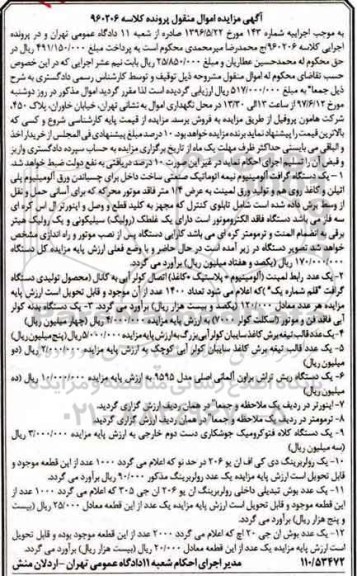 آگهی مزایده اموال منقول پرونده کلاسه ۹۶۰۲۰۶
به موجب اجراییه شماره ۱۴۳ مورخ ۱۳۹۶/۵/۲۲ صادره از شعبه ۱۱ دادگاه عمومی تهران و در پرونده
اجرایی کلاسه ۹۶۰۲۰۶/ج محمدرضا میرمحمدی محکوم است به پرداخت مبلغ ۴۹۱/۱۵۰/۰۰۰ ریال در
حق محکوم له محمدحسین عطاریان و مبلغ ۲۵/۸۵۰/۰۰۰ ریال بابت نیم عشر اجرایی که در این خصوص
حسب تقاضای محکوم له اموال منقول مشروحه ذیل توقیف و توسط کارشناس رسمی دادگستری به شرح
ذیل جمعا" به مبلغ ۵۱۷/۰۰۰/۰۰۰ ریال ارزیابی گردیده است لذا مقرر گردید اموال مذکور در روز دوشنبه
مورخ ۹۷/۶/۱۲ از ساعت ۱۳ الی ۱۳/۳۰ در محل نگهداری اموال به نشانی تهران، خیابان خاوران، پلاک ۴۵۰،
شرکت هامون پروفیل از طریق مزایده به فروش برسد. مزایده از قیمت پایه کارشناسی شروع و کسی که
بالاترین قیمت را پیشنهاد نماید برنده مزایده خواهد بود. ۱۰ درصد مبلغ پیشنهادی فی المجلس از خریدار اخذ
و الباقی می بایستی حداکثر ظرف مهلت یک ماه از تاریخ برگزاری مزایده به حساب سپرده دادگستری واریز
و قبض آن را تسلیم اجرای احکام نماید، در غیر این صورت ۱۰ درصد دریافتی به نفع دولت ضبط خواهد شد.
۱- یک دستگاه گرافت آلومینیوم نیمه اتوماتیک صنعتی ساخت داخل برای چسباندن ورق آلومینیوم پلی
اتیلن و کاغذ روی هم و تولید ورق لمینت به عرض ۱/۴ متر فاقد موتور محرکه که برای آسانی حمل و نقل
از وسط برش داده شده است شامل تابلوی کنترل که مجهز به کلید قطع و وصل و اینورتر ال اس کره ای
سه فاز می باشد دستگاه فاقد الکتروموتور است دارای یک غلطک (رولیک) سیلیکونی و یک رولیک هیتر
برقی به انضمام المنت و ترمومتر کره ای می باشد کارایی دستگاه پس از نصب موتور و راه اندازی مشخص
خواهد شد تصویر دستگاه در زیر آمده است در حال حاضر و با وضع فعلی ارزش پایه مزایده کل دستگاه
۱۷۰/۰۰۰/۰۰۰ ریال (یکصد و هفتاد میلیون ریال) برآورد می گردد.
۲- یک عدد رابط لمینت (آلومینیوم + پلاستیک + کاغذ) اتصال کولر آبی به کانال (محصول تولیدی دستگاه
گرافت "قلم شماره یک" )که اعلام می شود تعداد ۱۴۰۰ عدد از آن موجود و قابل تحویل است ارزش پایه
مزایده هر عدد معادل ۱۲۰/۰۰۰ (یکصد و بیست هزار ریال) برآورد می گردد. ۳- یک دستگاه بدنه کولر
آبی فاقد فن و موتور (اسکلت کولر ۷۰۰۰) به ارزش پایه مزایده ۴/۰۰۰/۰۰۰ ریال (چهار میلیون ریال)
۴- یک عدد قالب تیغه برش کاغذ سایبان کولر آبی بزرگ به ارزش پایه مزایده ۵/۰۰۰/۰۰۰ ریال (پنج میلیون ریال)
۵- یک عدد قالب تیغه برش کاغذ سایبان کولر آبی کوچک به ارزش پایه مزایده ۲/۰۰۰/۰۰۰ ریال (دو
میلیون ریال)
۶- یک دستگاه ریش تراش براون آلمانی اصلی مدل ۹۵۹۵ به ارزش پایه مزایده ۱۰/۰۰۰/۰۰۰ ریال (ده
میلیون ریال)
۷- اینورتر در ردیف یک ملاحظه و جمعا" در همان ردیف ارزش گزاری گردید.
۸- ترمومتر در ردیف یک ملاحظه و جمعا" در همان ردیف ارزش گزاری گردید.
۹- یک دستگاه کلاه فتوکرومیک جوشکاری دست دوم خارجی به ارزش پایه مزایده ۳/۰۰۰/۰۰۰ ریال
(سه میلیون ریال)
۱۰- یک رولربرینگ دی کی اف ان یو ۲۰۶ در حد نو که اعلام می گردد ۱۰۰۰ عدد از این قطعه موجود و
قابل تحویل است ارزش پایه مزایده یک عدد رولربرینگ مذکور ۹۰/۰۰۰ ریال برآورد می گردد.
۱۱- یک عدد بوش تبدیلی داخلی رولربرینگ ان یو ۲۰۶ ان جی ۳۰۵ که اعلام می گردد ۱۰۰۰ عدد از
این قطعه موجود و قابل تحویل است ارزش پایه مزایده یک عدد از این قطعه معادل ۲۵/۰۰۰ ریال (بیست
و پنج هزار ریال) برآورد می گردد.
۱۲- یک عدد بوش ان جی ۲۰ اچ که اعلام می گردد ۲۰۰۰ عدد از این قطعه موجود بوده و قابل تحویل
است ارزش پایه مزایده یک عدد از این قطعه معادل ۲۰/۰۰۰ ریال (بیست هزار ریال) برآورد می گردد.
۱۱۰/۵۳۴۷۲ مدیر اجرای احکام شعبه ۱۱ دادگاه عمومی تهران - اردلان منش